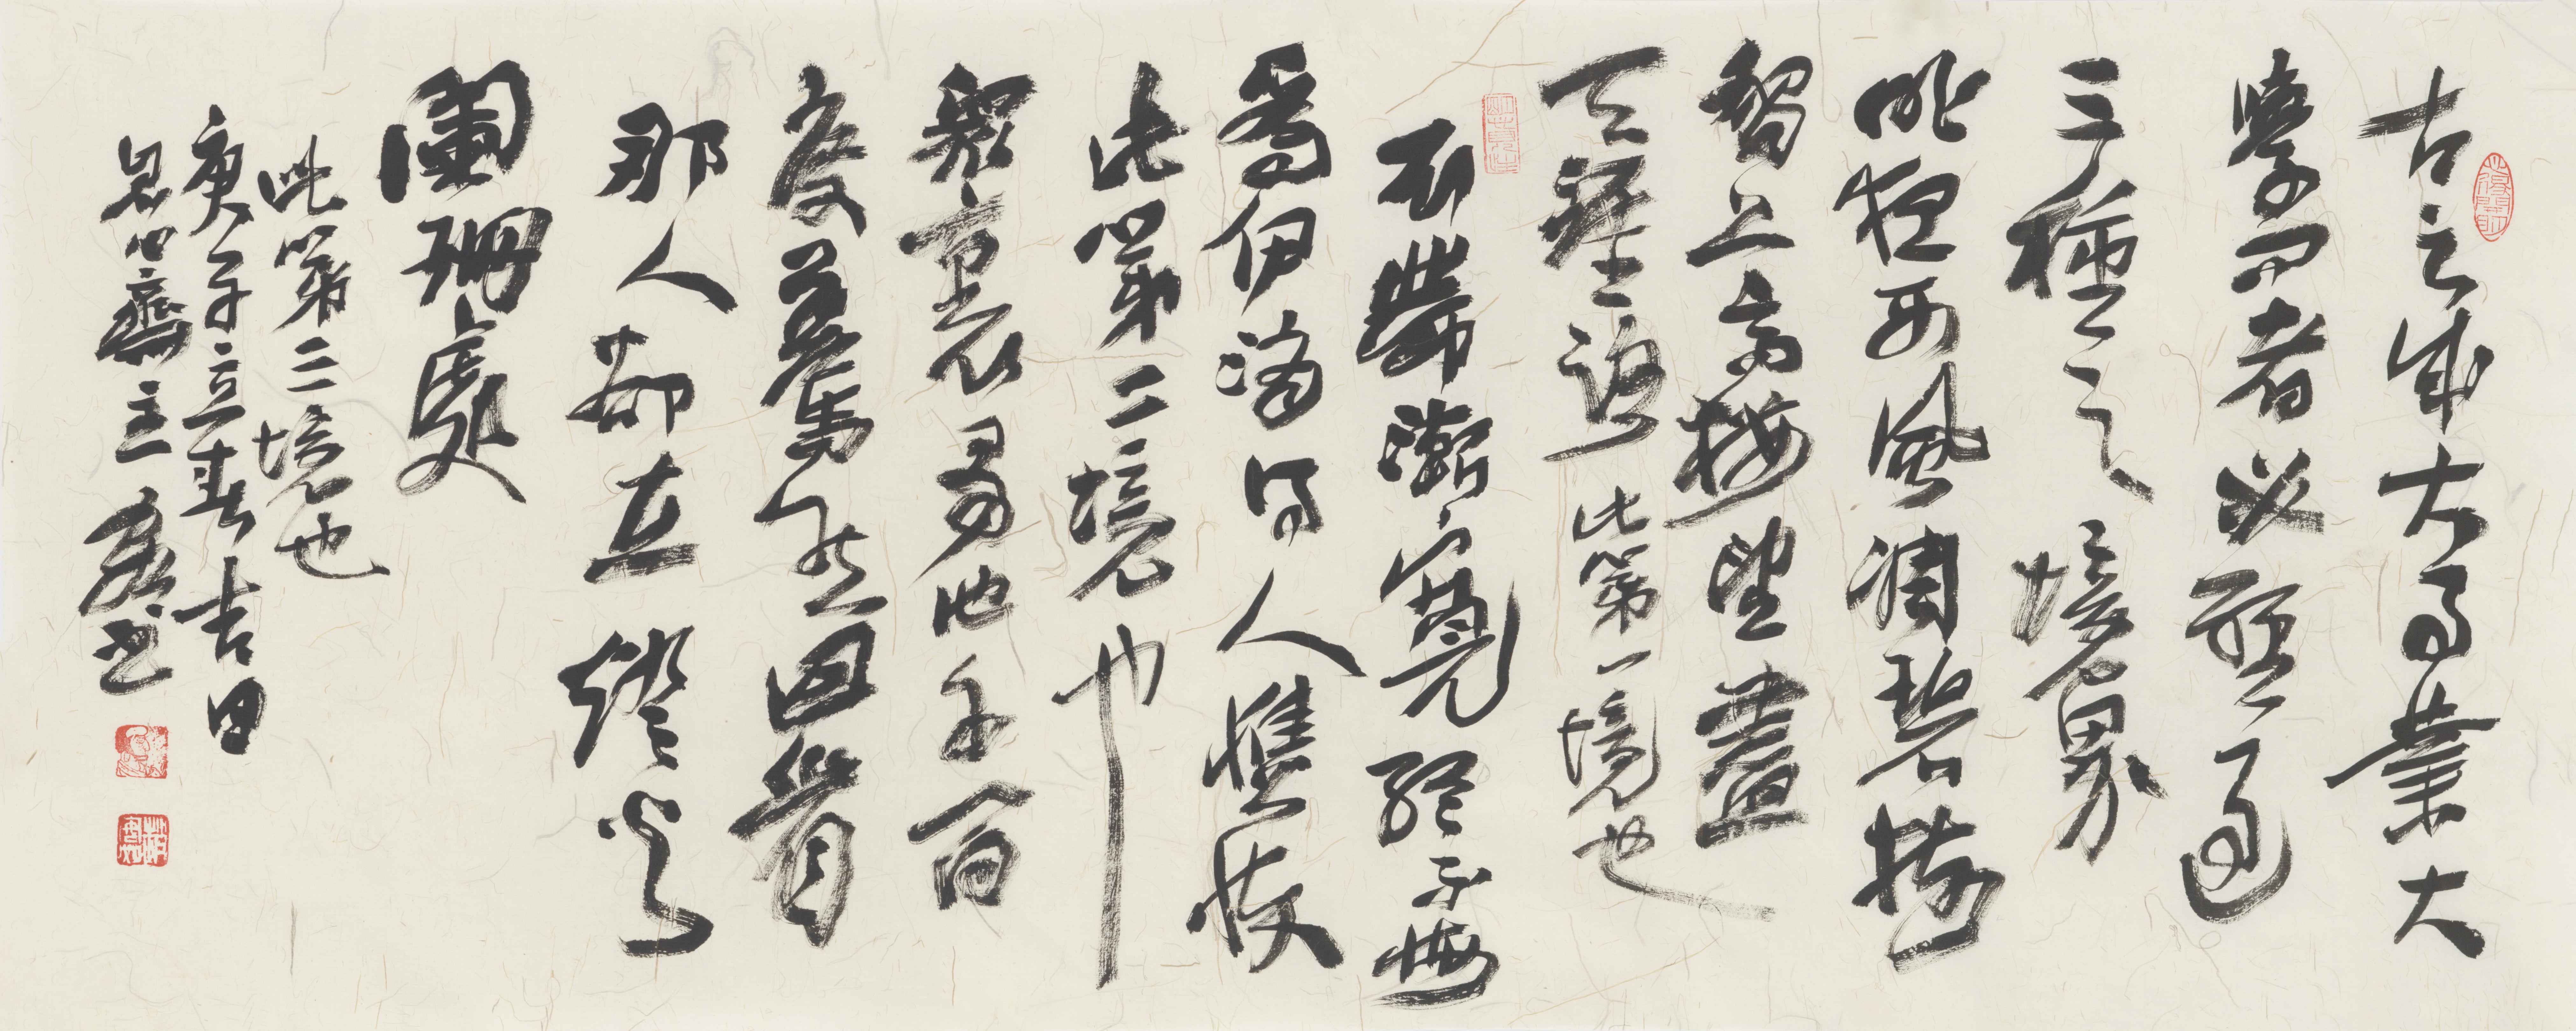 古之成大事業大
學問者必經過
三種之境界
昨夜西風凋碧樹
獨上高樓望盡
天涯路 此第一境也
衣帶漸寬終不悔
爲伊消得人憔悴
此第二境也
眾裏尋他千百
度驀然回首
那人卻在燈火
闌珊處
此第三境也
庚子立春吉日
齋主 書